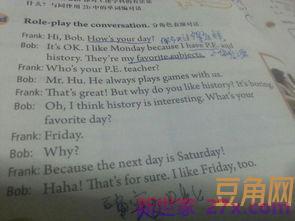 Role-play the conversation. 分角色表演对话
Frank: Hi, Bob. How's your day?
Bob: It's OK. I like Monday because I have P.E. and
history. They're my favorite subjects.
Frank: Who's your P.E. teacher?
Bob: Mr. Hu. He always plays games with us.
Frank: That's great! But why do you like history? It's boring.
Bob: Oh, I think history is interesting. What's your
favorite day?
Frank: Friday.
Bob: Why?
Frank: Because the next day is Saturday!
Bob: Haha! That's for sure. I like Friday, too.
豆角网
27x.com